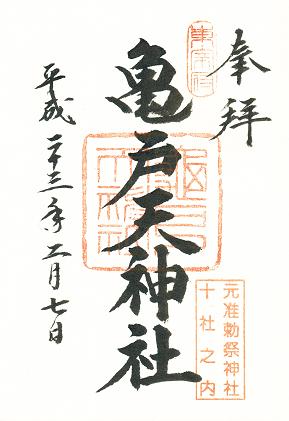 奉拝
亀戸天神社
平成二十三年二月七日
元准勅祭神社
十社之内